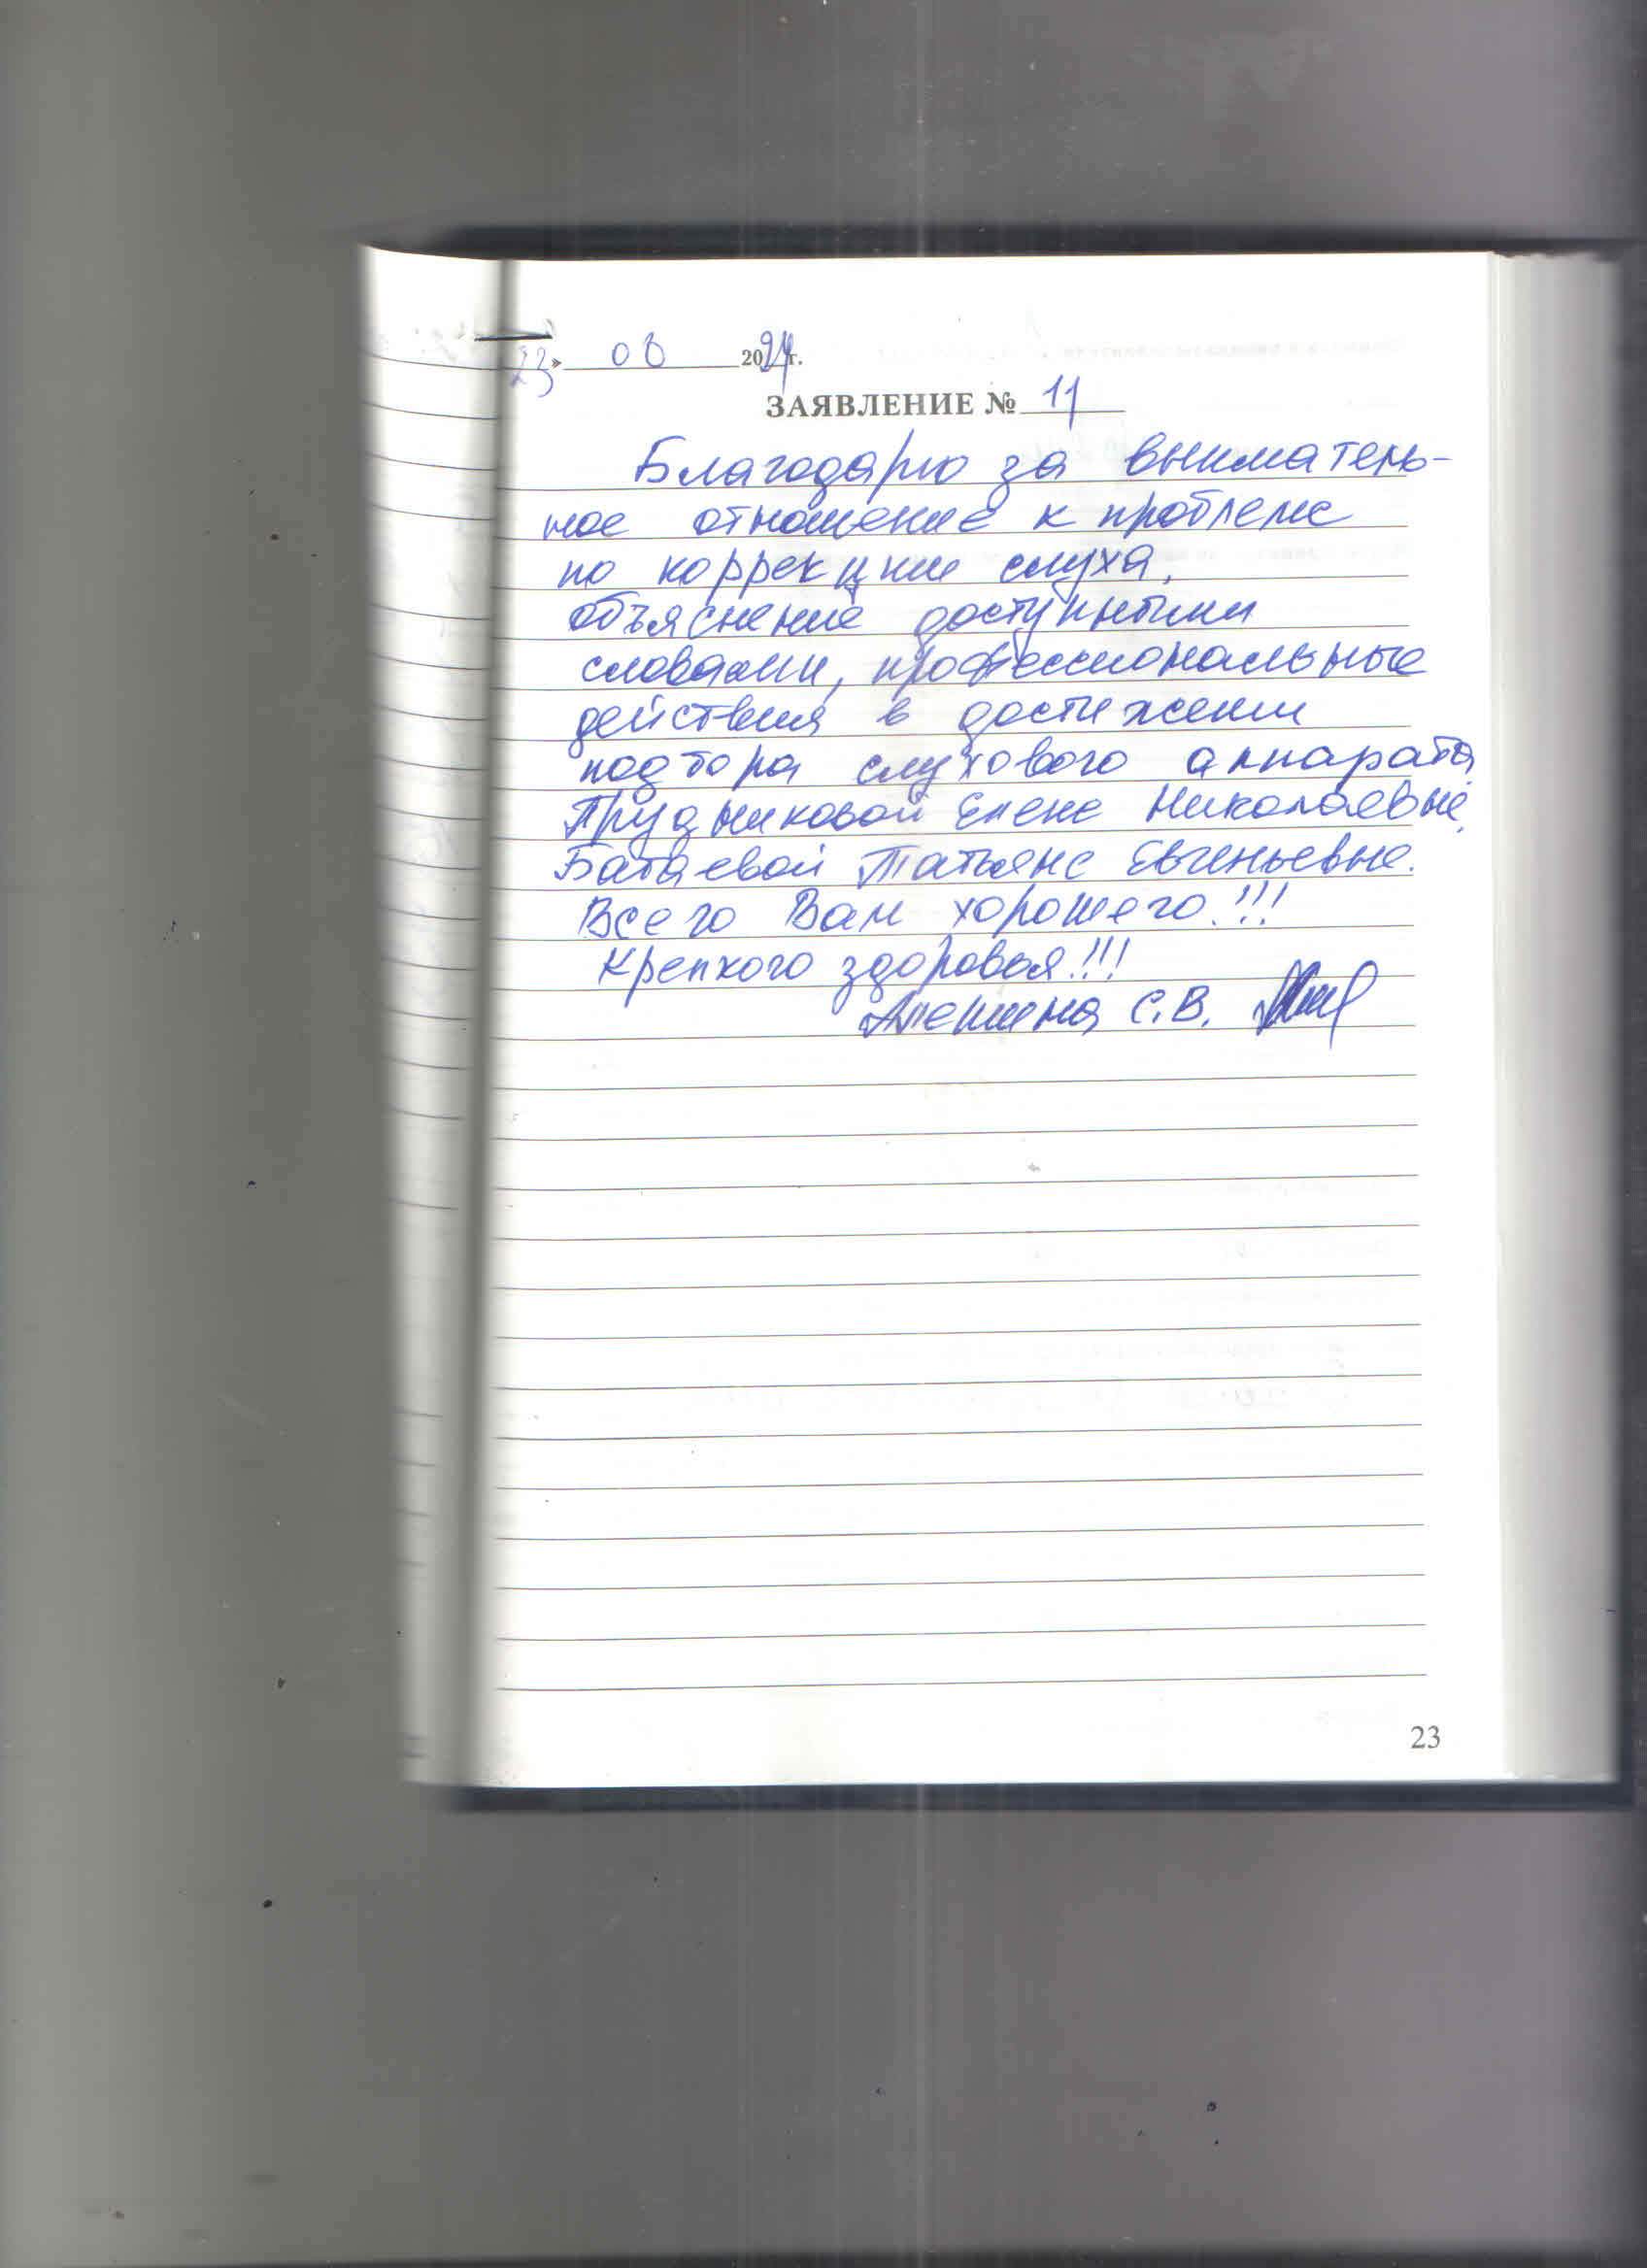 23» 08 2024г.
ЗАЯВЛЕНИЕ № 11
Благодарю за вниматель-
ное отношение к проблеме
по коррекции слуха,
объяснение доступными
словами, профессиональные
действия в достижении
подбора слухового аппарата
Трудниковой Елене Николаевне,
Батаевой Татьяне Евгеньевне.
Всего Вам хорошего!!!
Крепкого здоровья!!!
Алешина С.В.
23